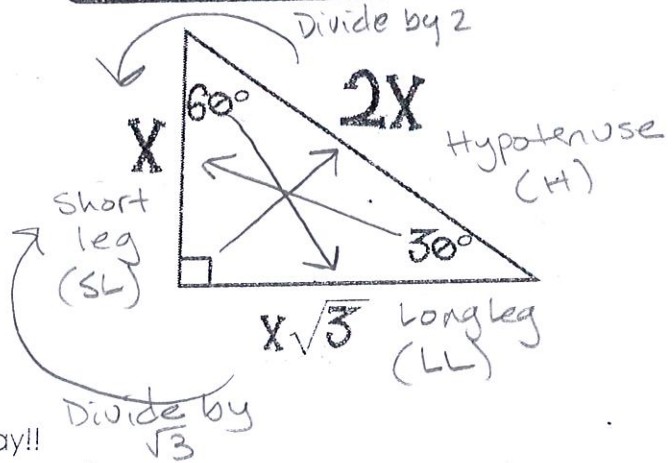 Divide by 2
60°
2X
X
Hypotenuse
(H)
Short
leg
(SL)
30°
X√3
Long leg
(LL)
Divide by
√3
ay!!